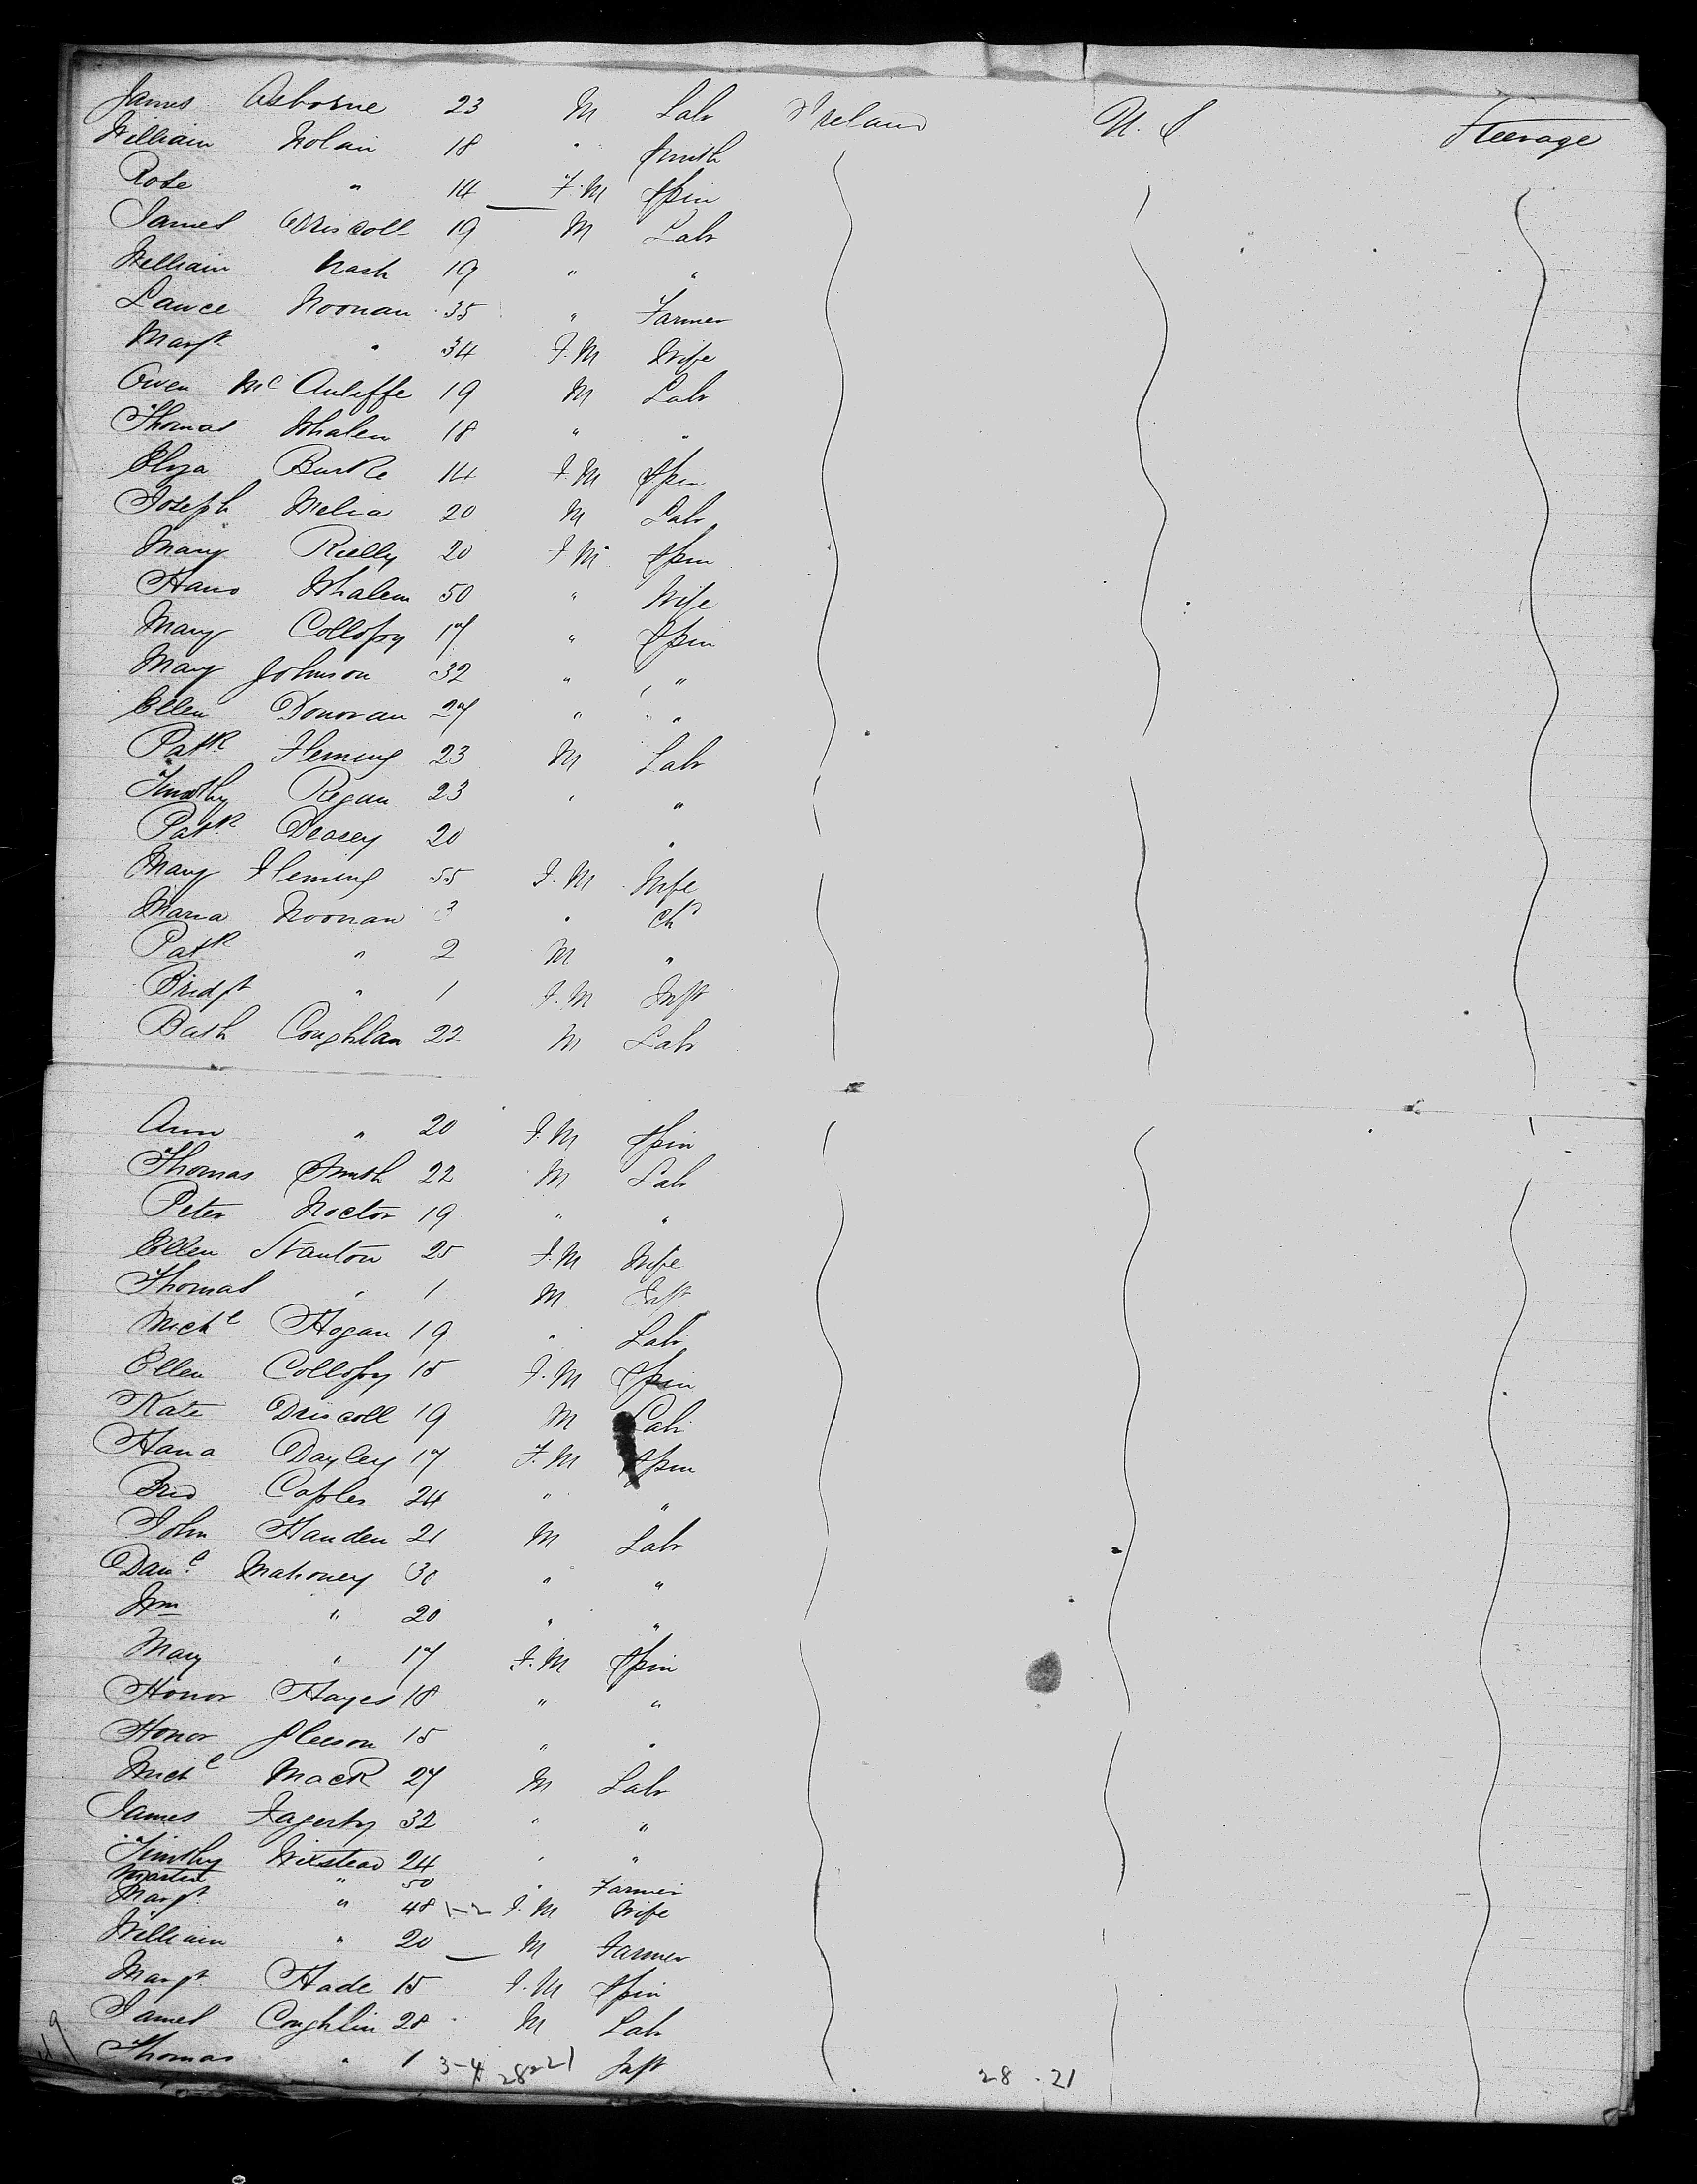 James Osborne 23 M Labr Ireland U. S Steerage
William Nolan 18 " Smith
Rose " 14 F. M Spin
James Driscoll 19 M Labr
William Nash 19 " "
Lawce Noonan 35 " Farmer
Margt " 34 F. M Wife
Owen McAuliffe 19 M Labr
Thomas Whalen 18 " "
Eliza Burke 14 F. M Spin
Joseph Melia 20 M Labr
Mary Rielly 20 F M Spin
Hano Whalen 50 " Wife
Mary Collopy 17 " Spin
Mary Johnson 32 " "
Ellen Donovan 27 " "
Patk Fleming 23 M Labr
Timothy Regan 23 " "
Patk Deasey 20 "
Mary Fleming 55 F. M Wife
Maria Noonan 3 " Chd
Patk " 2 M "
Bridgt " 1 F. M Inft
Bath Coughlan 22 M Labr
Ann " 20 F. M Spin
Thomas Smith 22 M Labr
Peter Noctor 19 " "
Ellen Stanton 25 F. M Wife
Thomas " 1 M Inft
Michl Hogan 19 " Labr
Ellen Collopy 15 F. M Spin
Kate Driscoll 19 M Labr
Hana Dayley 17 F. M Spin
Brid Caples 24 " "
John Handen 21 M Labr
Danl Mahoney 30 " "
Wm " 20 " "
Mary " 17 F. M Spin
Honor Hayes 18 " "
Honor Gleeson 15 " "
Michl Mack 27 M Labr
James Fagerty 32 " "
Timothy Wixstead 24 " "
Martin " 50 " Farmer
Margt " 48 1-2 F. M Wife
William " 20 M Farmer
Margt Hade 15 F. M Spin
James Coughlin 28 M Labr
Thomas " 1 3-4 28-21 Inft 28 . 21